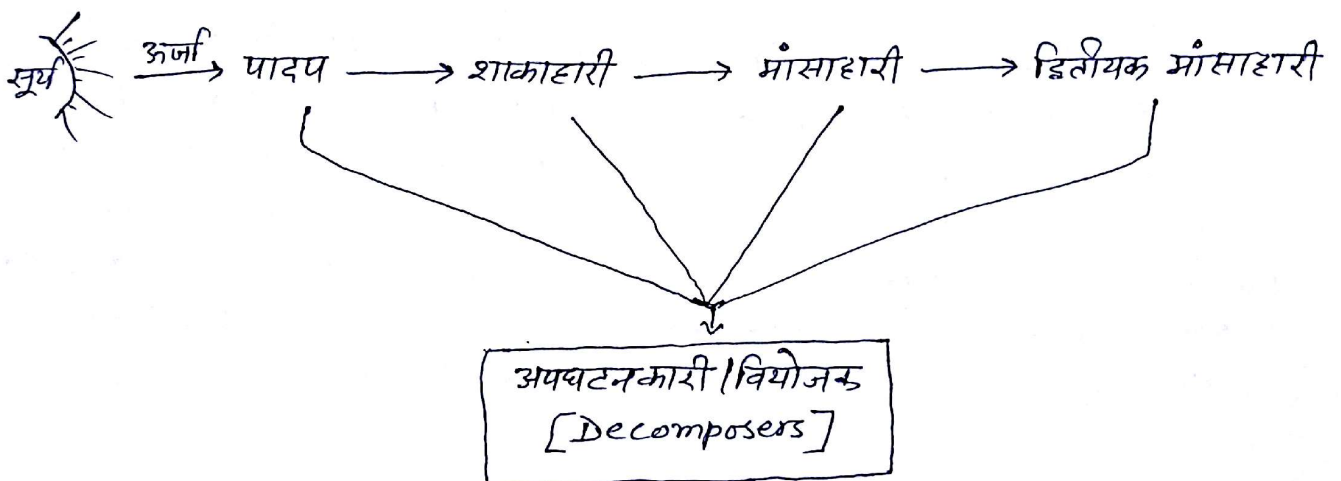 सूर्य ऊर्जा पादप शाकाहारी मांसाहारी द्वितीयक मांसाहारी
अपघटनकारी / वियोजक
[Decomposers]